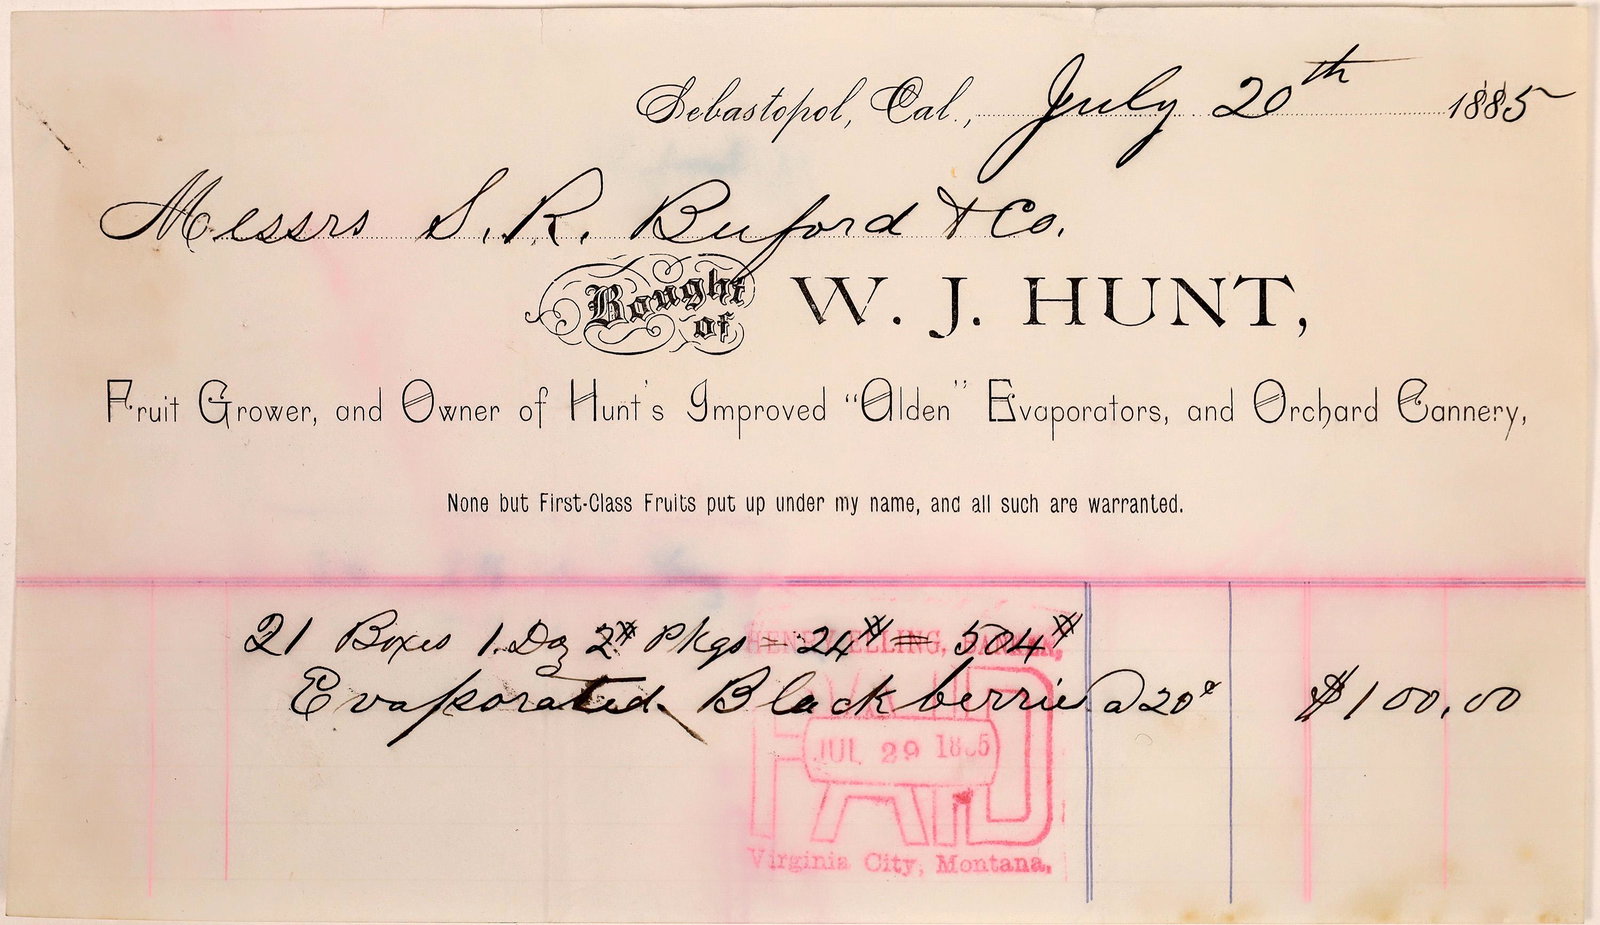 Sebastopol, Cal., July 20th 1885
Messrs S. R. Buford & Co.
Bought of W. J. HUNT,
Fruit Grower, and Owner of Hunt's Improved "Alden" Evaporators, and Orchard Cannery,
None but First-Class Fruits put up under my name, and all such are warranted.
21 Boxes 1 Doz 2# Pkgs = 24# = 504#
Evaporated Blackberries @ 20¢ $100.00
HENRY ELLING, BANKER,
PAID
JUL 29 1885
Virginia City, Montana.